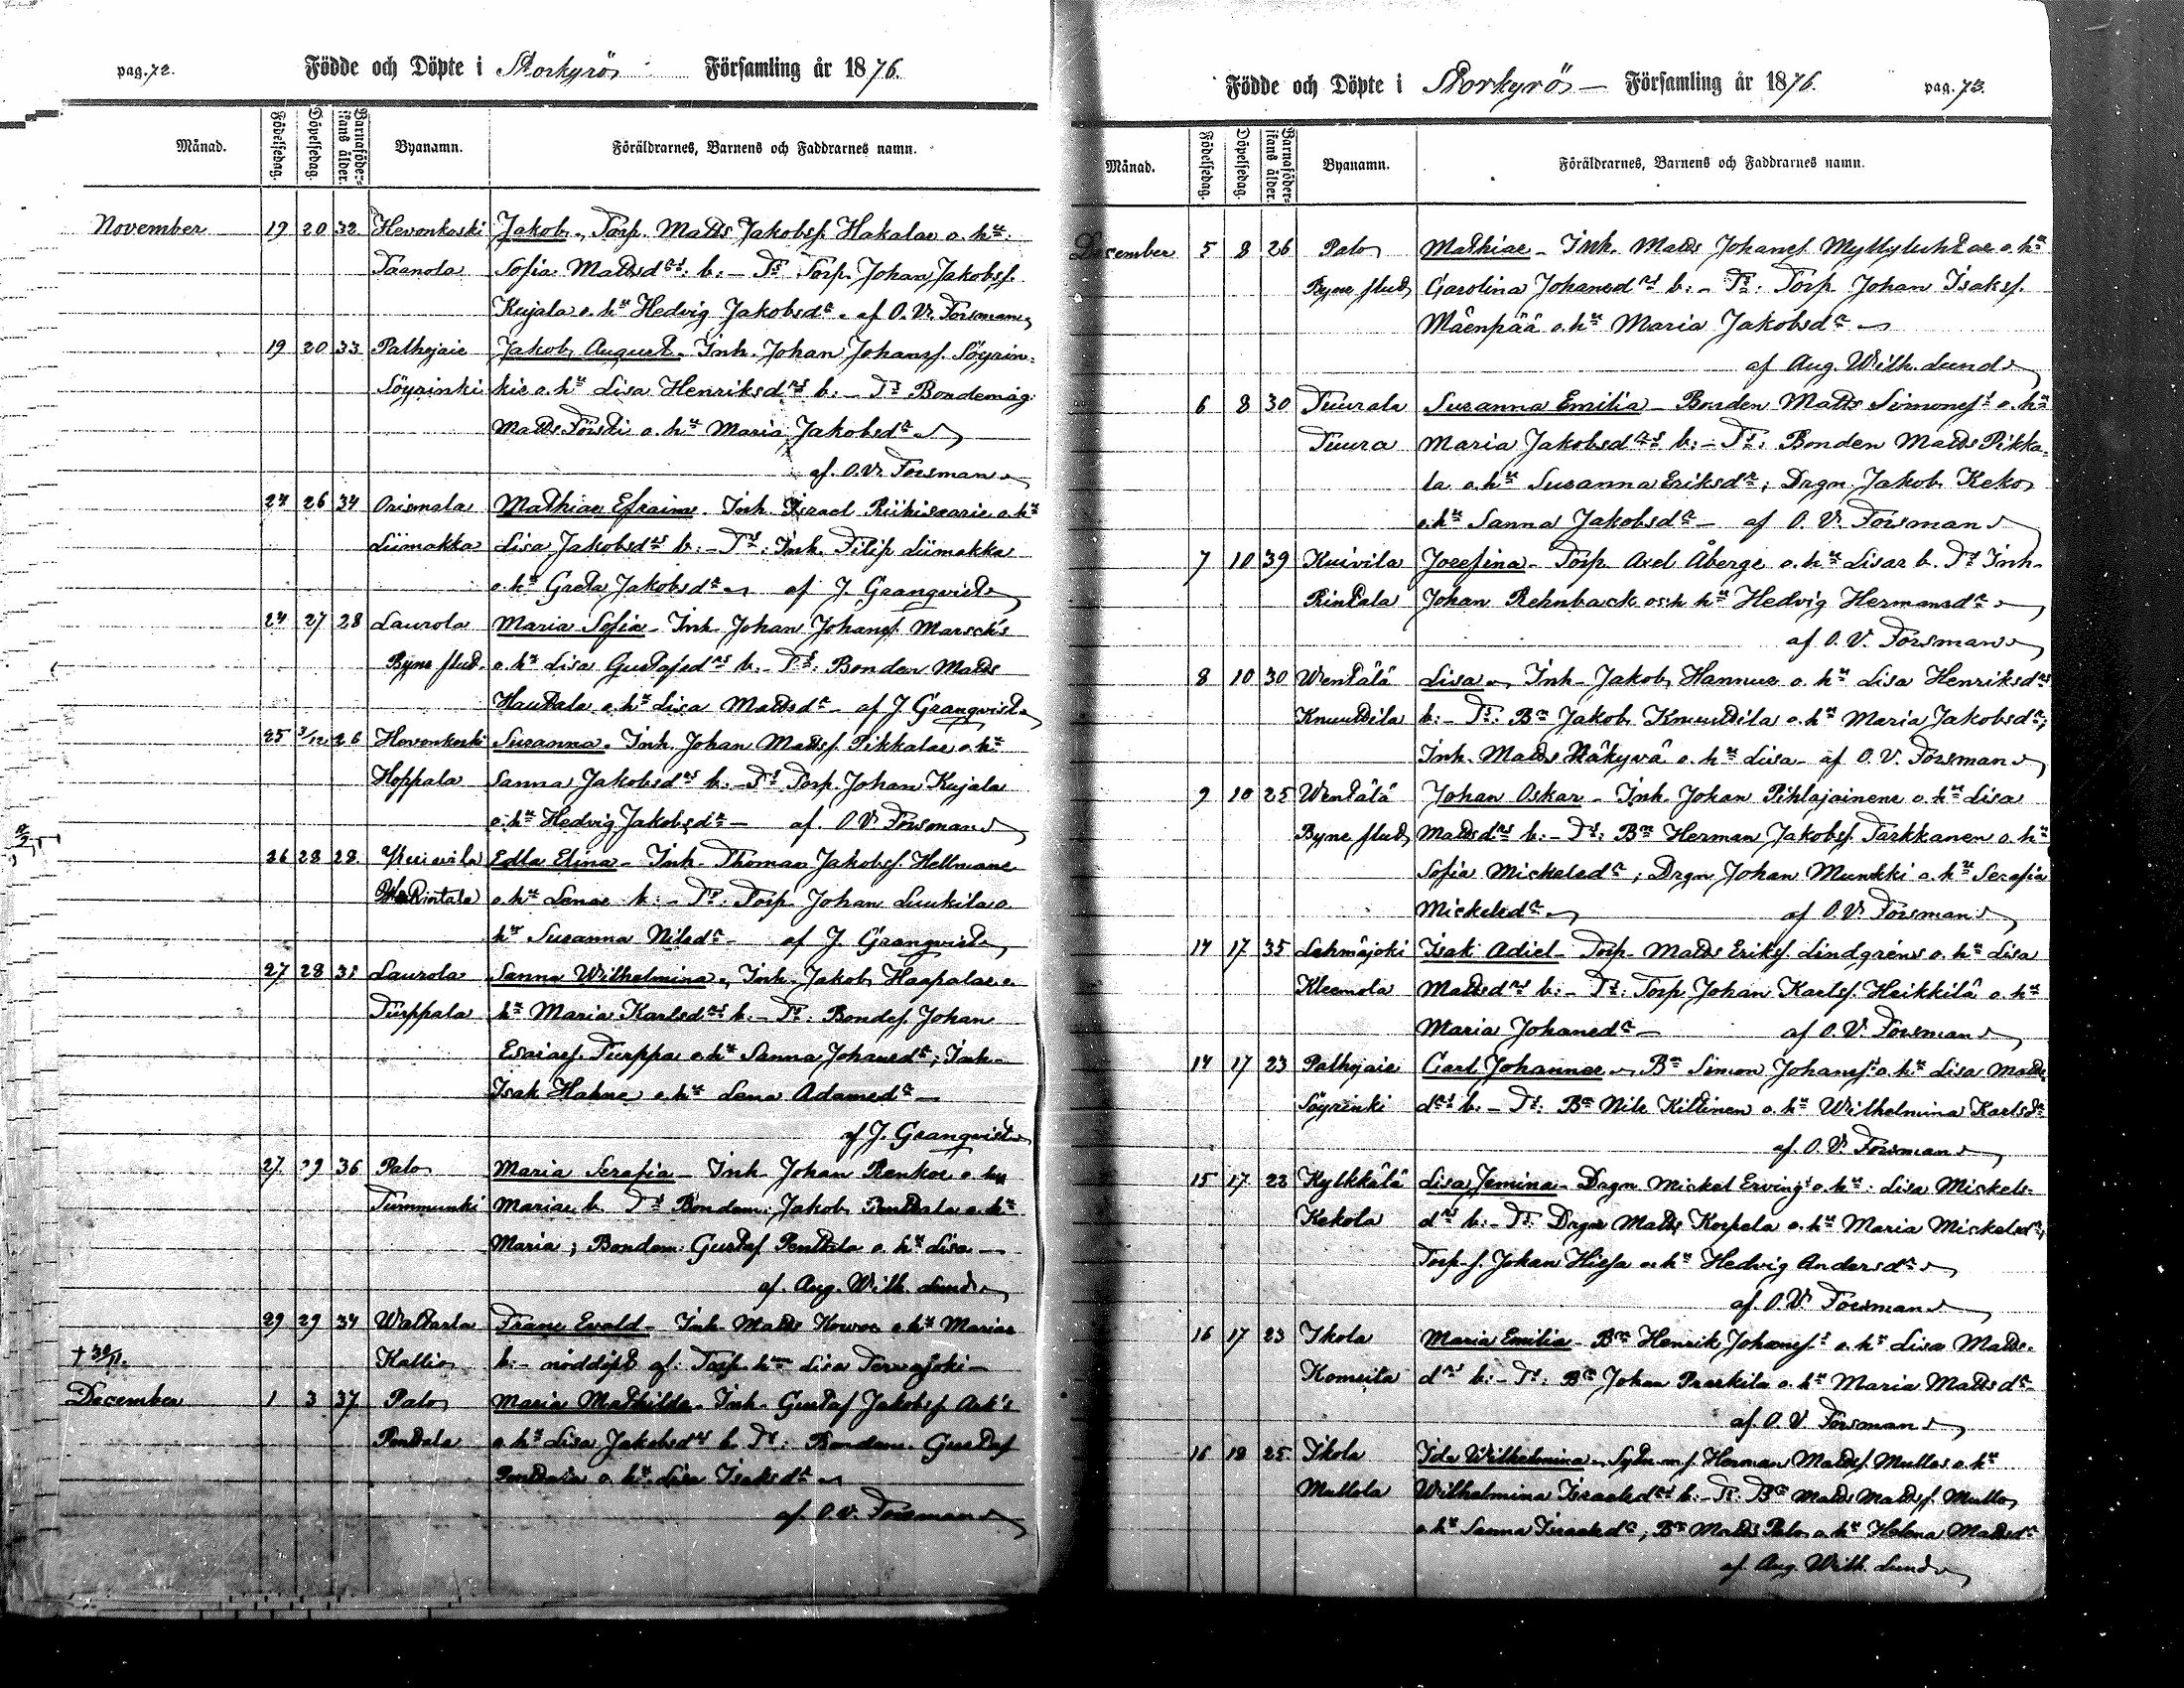 pag. 72.
Födde och Döpte i Storkyrö Församling år 1876.
Månad. Födelsedag. Döpelsedag. Barnaföderskans ålder. Byanamn. Föräldrarnes, Barnens och Faddrarnes namn.
November 19 20 32 Hevonkoski Jakob, Torp. Matts Jakobss. Hakalas o. hu.
Taanola Sofia Mattsdrs. b: – Ts Torp. Johan Jakobss.
Kujala o. hu Hedvig Jakobsdr. af O. V. Forsman
19 20 33 Palhojais Jakob August. Inh. Johan Johanss. Söyrin-
Söyrinki kis o. hu Lisa Henriksdrs b: – Ts Bondemåg
Matts o. hu Maria Jakobsdr
af. O. V. Forsman
24 26 34 Orismala Mathias Efraim. Inh. Israel o. hu
Liimakka Lisa Jakobsdrs b: – Ts: Inh. Filip Liimakka
o. hu Greta Jakobsdr af J. Granqvist
24 27 28 Laurola Maria Sofia – Inh. Johan Johanss. Marsck's
Byns slut. o. hu Lisa Gustafsdrs b. – Ts: Bonden Matts
Hautala o. hu Lisa Mattsdr – af J. Granqvist
25 3/12 26 Hevonkoski Susanna. Inh. Johan Mattss. Pikkalas o. hu
Hoppala Sanna Jakobsdrs b. – Ts Torp. Johan Kujala
o. hu Hedvig Jakobsdr – af. O. V. Forsman
26 28 28 Edla Elina – Inh. Thomas Jakobss. Hellmans
Rintala o. hu Lenas b: – Ts: Torp. Johan Luukila o.
hu Susanna Nilsdr – af J. Granqvist
27 28 31 Laurola Sanna Wilhelmina, Inh. Jakob Haapalas o.
Turppala hu Maria Karlsdrs b. – Ts: Bondes. Johan
Esaiass. Turppa o. hu Sanna Johansdr; Inh.
Isak Hahne o. hu Lena Adamsdr –
af J. Granqvist
27 29 36 Palo Maria Serafia – Inh. Johan Renkos o. hu
Turmunki Marias b. Ts Bondem. Jakob Penttala o. hu
Maria; Bondem. Gustaf Penttala o. hu Lisa –
af. Aug. Wilh. Lund
29 29 34 Waltarla Frans Evald – Inh. Matts o. hu Marias
+ 30/11. Kallio b: – nöddöpt af: Torp. hu Lisa Tervajoki –
December 1 3 37 Palo Maria Mathilda. Inh. Gustaf Jakobss. Ark's
Penttala o. hu Lisa Jakobsdrs b. Ts: Bondem. Gustaf
Penttala o. hu Lisa Isaksdr
af. O. V. Forsman
Födde och Döpte i Storkyrö – Församling år 1876.
pag. 73.
Månad. Födelsedag. Döpelsedag. Barnaföderskans ålder. Byanamn. Föräldrarnes, Barnens och Faddrarnes namn.
December 5 8 26 Palo Mathias – Inh. Matts Johanss. Myllyluhtas o. hu
Byns slut Carolina Johansdrs b: – Ts: Torp. Johan Isakss.
Mäenpää o. hu Maria Jakobsdr
af Aug. Wilh. Lund
6 8 30 Tuurala Susanna Emilia – Bonden Matts Simonss. o. hu
Tuura Maria Jakobsdrs b: – Ts: Bonden Matts Pikka-
la o. hu Susanna Eriksdr; Drgn Jakob Keko
o. hu Sanna Jakobsdr – af O. V. Forsman
7 10 39 Kuivila Josefina – Torp. Axel Åbergs o. hu Lisas b. Ts Inh.
Rintala Johan Rehnback och hu Hedvig Hermansdr
af O. V. Forsman
8 10 30 Wentälä Lisa – Inh. Jakob Hannus o. hu Lisa Henriksdrs
Knuuttila b: – Ts: Bn Jakob Knuuttila o. hu Maria Jakobsdr;
Inh. Matts Näkyvä o. hu Lisa – af O. V. Forsman
9 10 25 Wentälä Johan Oskar – Inh. Johan Pihlajainens o. hu Lisa
Byns slut Mattsdrs b: – Ts: Bn Herman Jakobss. Tarkkanen o. hu
Sofia Mickelsdr; Drgn Johan Munkki o. hu Serafia
Mickelsdr af O. V. Forsman
14 17 35 Lehmäjoki Isak Adiel – Torp. Matts Erikss. Lindgréns o. hu Lisa
Kleemola Mattsdrs b: – Ts: Torp. Johan Karlss. Heikkilä o. hu
Maria Johansdr – af O. V. Forsman
14 17 23 Palhojais Carl Johannes – Bn Simon Johanss. o. hu Lisa Matts-
Söyrinki drs b. – Ts: Bn Nils Kiltinen o. hu Wilhelmina Karlsdr
af O. V. Forsman
15 17 22 Kylkkälä Lisa Jemina – Drgn Mickel Ervings o. hu: Lisa Mickels-
Kekola drs b: – Ts: Drgn Matts Korpela o. hu Maria Mickelsdr;
Torp. s. Johan o. hu Hedvig Andersdr
af. O. V. Forsman
16 17 23 Ikola Maria Emilia – Bn Henrik Johanss. o. hu Lisa Matts-
Komsila drs b: – Ts: Bn Johan o. hu Maria Mattsdr
af. O. V. Forsman
16 18 25 Ikola Ida Wilhelmina – Herman Mattss. Mullos o. hu
Mullola Wilhelmina Israelsdrs b: – Ts: Bn Matts Mattss. Mullo
o. hu Sanna Israelsdr; Bn Matts Palo o. hu Helena Mattsdr
af Aug. Wilh. Lund